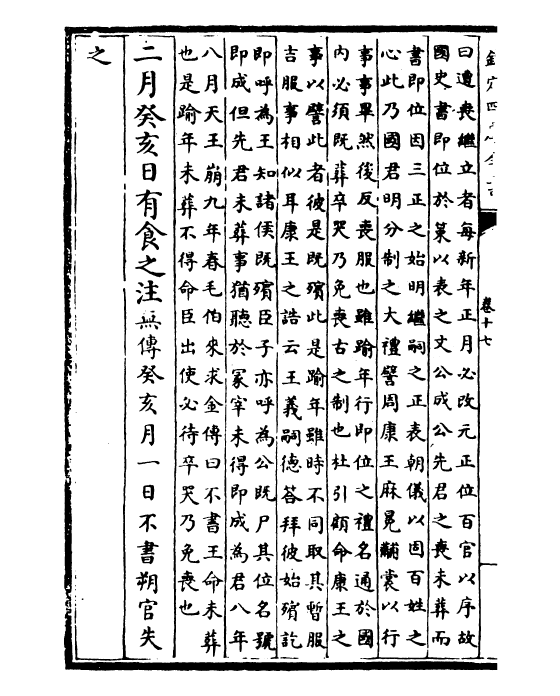 欽定四庫全書
卷十七
曰遭喪繼立者每新年正月必改元正位百官以序故
國史書即位於策以表之文公成公先君之喪未葬而
書即位因三正之始明繼嗣之正表朝儀以固百姓之
心此乃國君明分制之大禮譬周康王麻冕黼裳以行
事事畢然後反喪服也雖踰年行即位之禮名通於國
内必須既葬卒哭乃免喪古之制也杜引顧命康王之
事以譬此者彼是既殯此是踰年雖時不同取其暫服
吉服事相似耳康王之誥云王義嗣德答拜彼始殯訖
即呼為王知諸侯既殯臣子亦呼為公既尸其位名號
即成但先君未葬事猶聽於冢宰未得即成為君八年
八月天王崩九年春毛伯來求金傳曰不書王命未葬
也是踰年未葬不得命臣出使必待卒哭乃免喪也
二月癸亥日有食之注無傳癸亥月一日不書朔官失
之